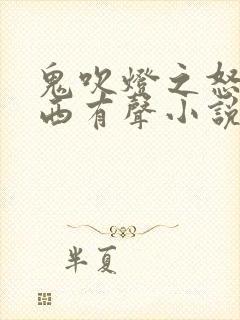 鬼吹燈之怒
西有聲小說
半夏